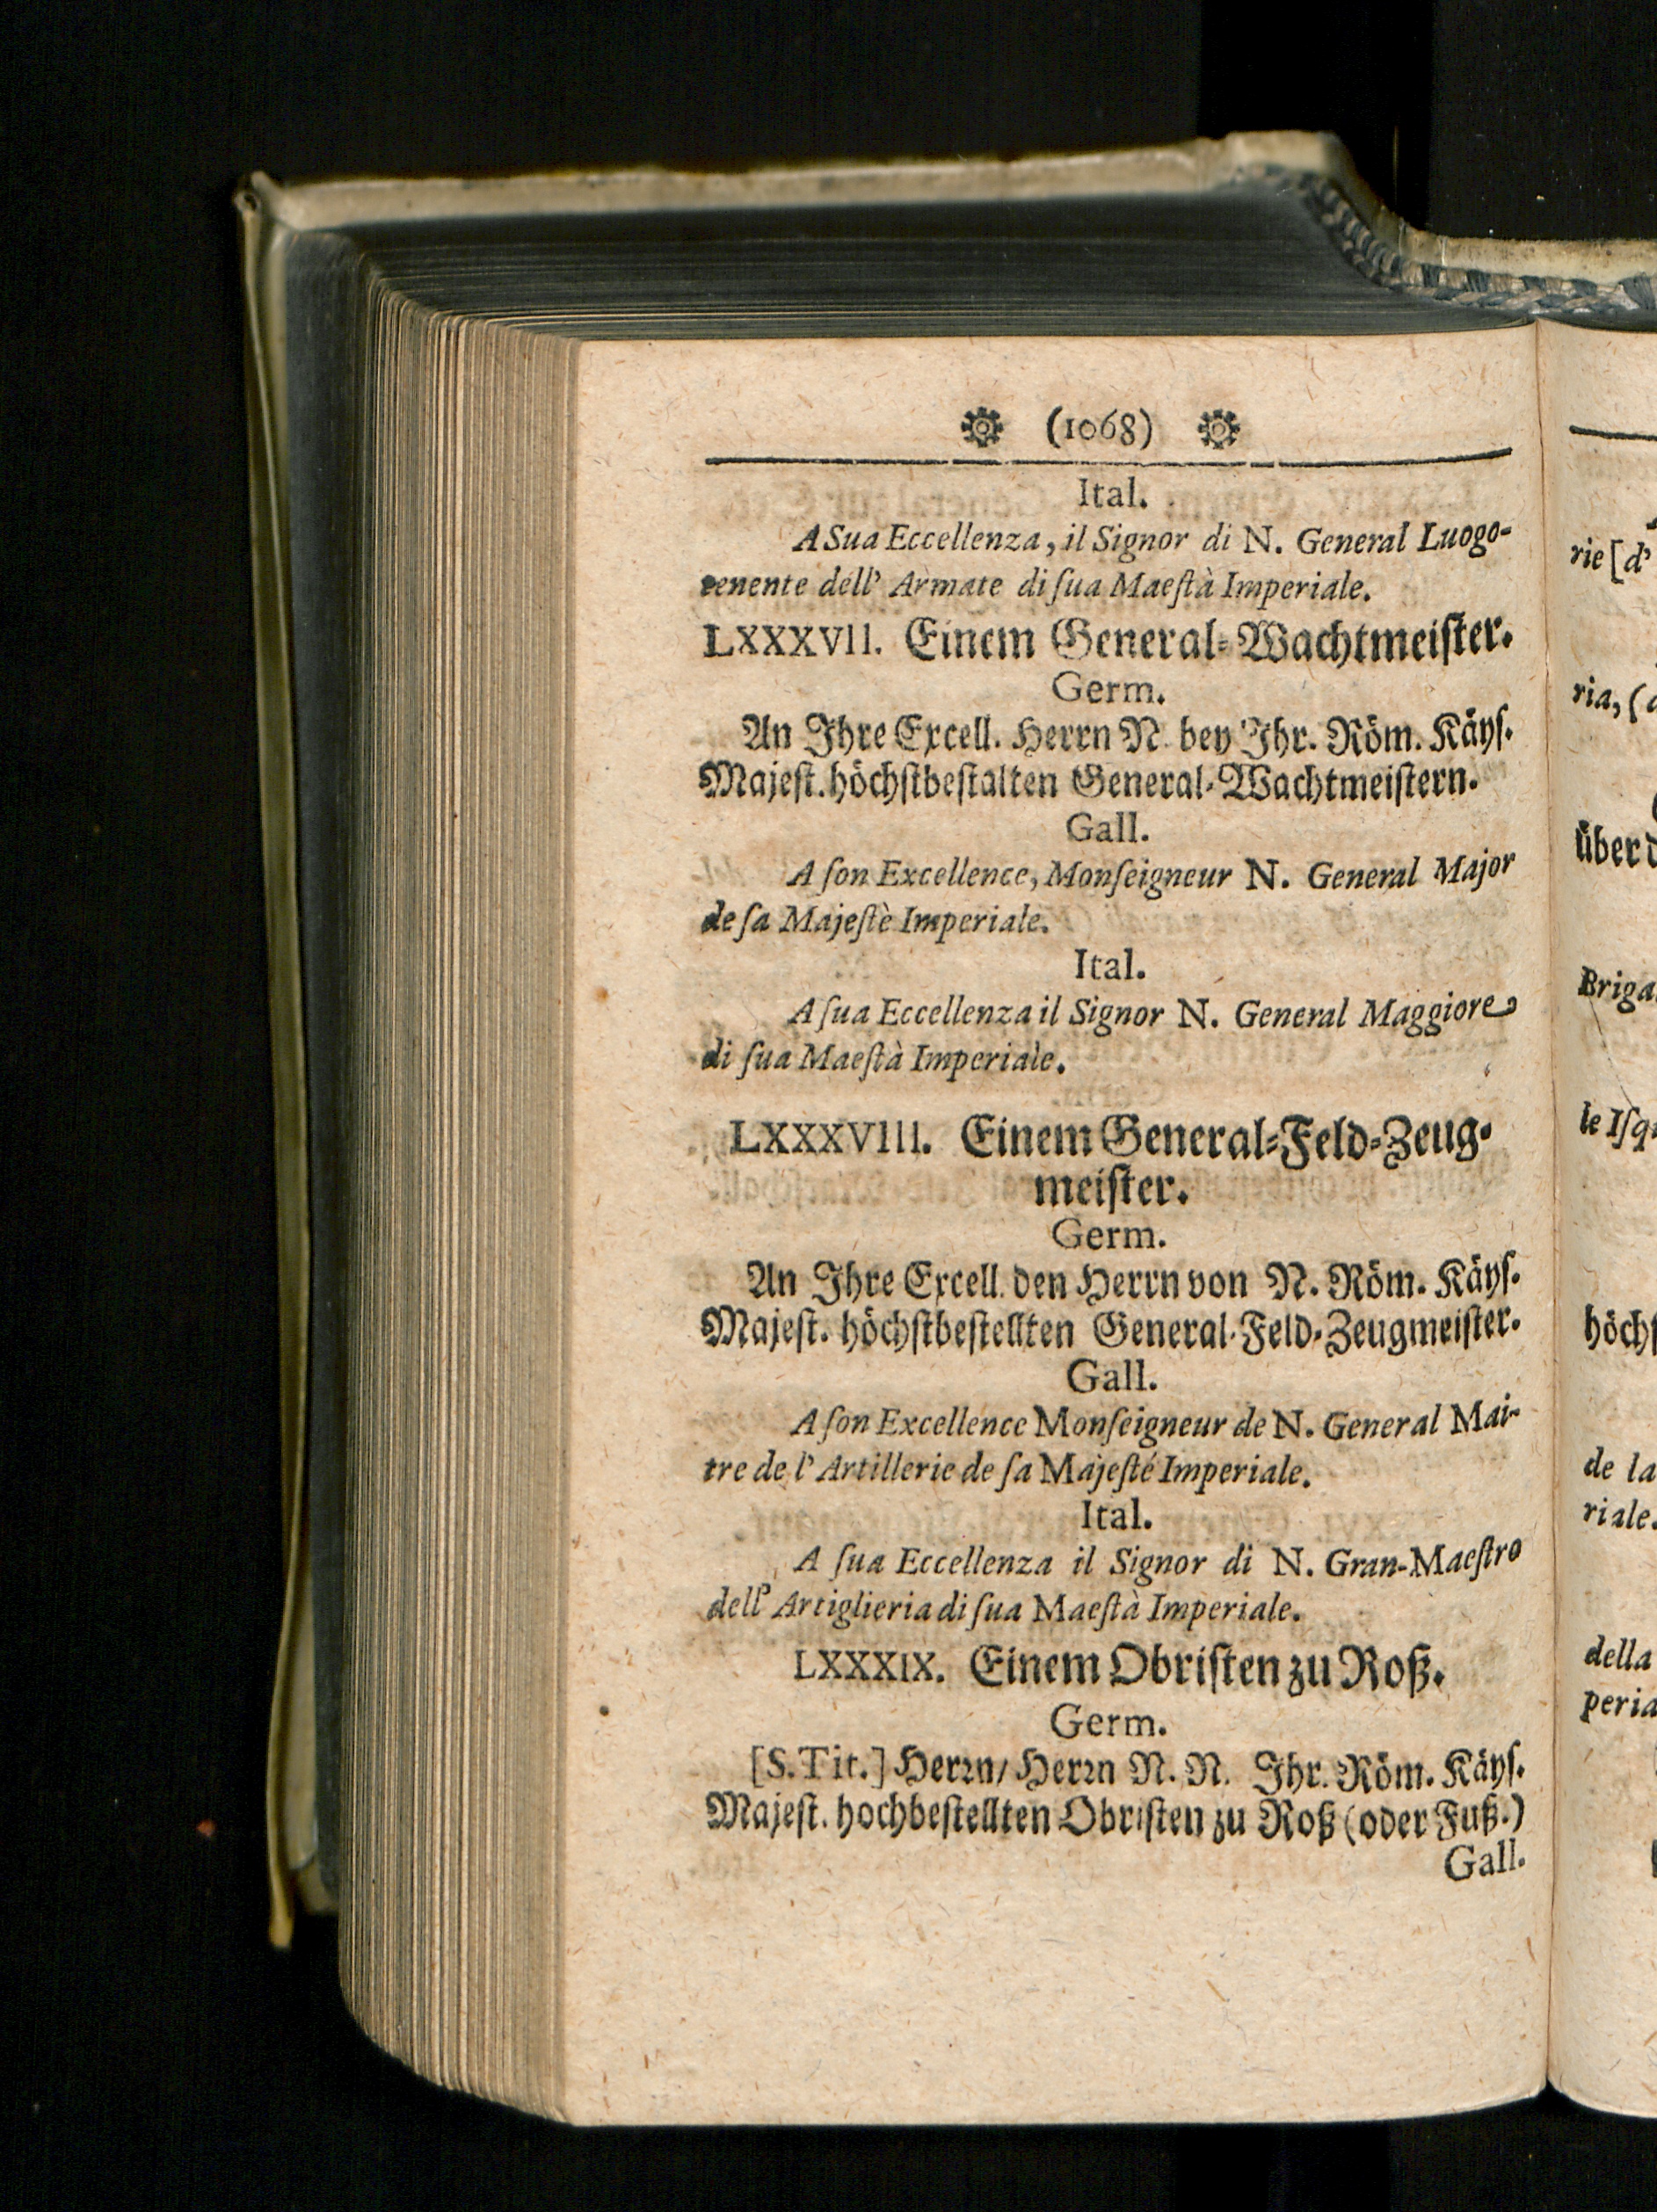 (1068)
Ital.
A Sua Eccellenza, il Signor di N. General Luogo-
tenente dell' Armate di ſua Maeſtà Imperiale.
LXXXVII. Einem General-Wachtmeiſter.
Germ.
An Ihre Excell. Herrn N. bey Ihr. Röm. Käyſ.
Majeſt. höchſtbeſtalten General-Wachtmeiſtern.
Gall.
A ſon Excellence, Monſeigneur N. General Major
de ſa Majeſtè Imperiale.
Ital.
A ſua Eccellenza il Signor N. General Maggiore
di ſua Maeſtà Imperiale.
LXXXVIII. Einem General-Feld-Zeug-
meiſter.
Germ.
An Ihre Excell. den Herrn von N. Röm. Käyſ.
Majeſt. höchſtbeſtellten General-Feld-Zeugmeiſter.
Gall.
A ſon Excellence Monſeigneur de N. General Mai-
tre de l' Artillerie de ſa Majeſté Imperiale.
Ital.
A ſua Eccellenza il Signor di N. Gran-Maeſtro
dell' Artiglieria di ſua Maeſtà Imperiale.
LXXXIX. Einem Obriſten zu Roß.
Germ.
[S. Tit.] Herꝛn/ Herꝛn N. N. Ihr. Röm. Käyſ.
Majeſt. hochbeſtellten Obriſten zu Roß (oder Fuß.)
Gall.
rie [d'
ria, (
über d
Briga
le Iſq
höchſ
de la
riale.
della
peria